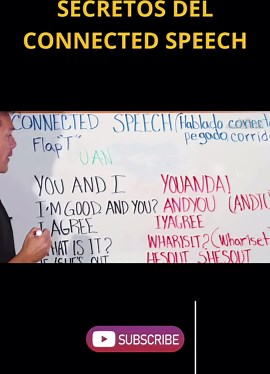 SECRETOS DEL
CONNECTED SPEECH
CONNECTED SPEECH (Hablado conect
Flap "T" pegado, corrid
UAN
YOU AND I YOUANDAI
I'M GOOD AND YOU? ANDYOU (ANDI
I AGREE IYAGREE
WHAT IS IT? WHARISIT? (Whariset
HE/SHE'S OUT HESOUT SHESOUT
SUBSCRIBE